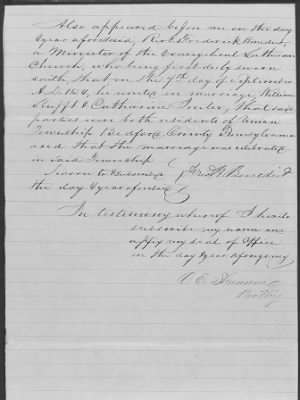 Also appeared before me on the day
& year aforesaid, Rev. Frederick Benedict
a Minister of the Evangelical Lutheran
Church, who being first duly sworn
saith that on the 7th day of September
A.D. 1814, he united in marriage William
& Catharine that said
parties were both residents of Union
Township Bedford County Pennsylvania
and that the marriage was celebrated
in said Township
Sworn to & subscribed Benedict
the day & year aforesaid
In testimony whereof I
subscribe my name and
affix my seal of Office
on the day & year aforegoing